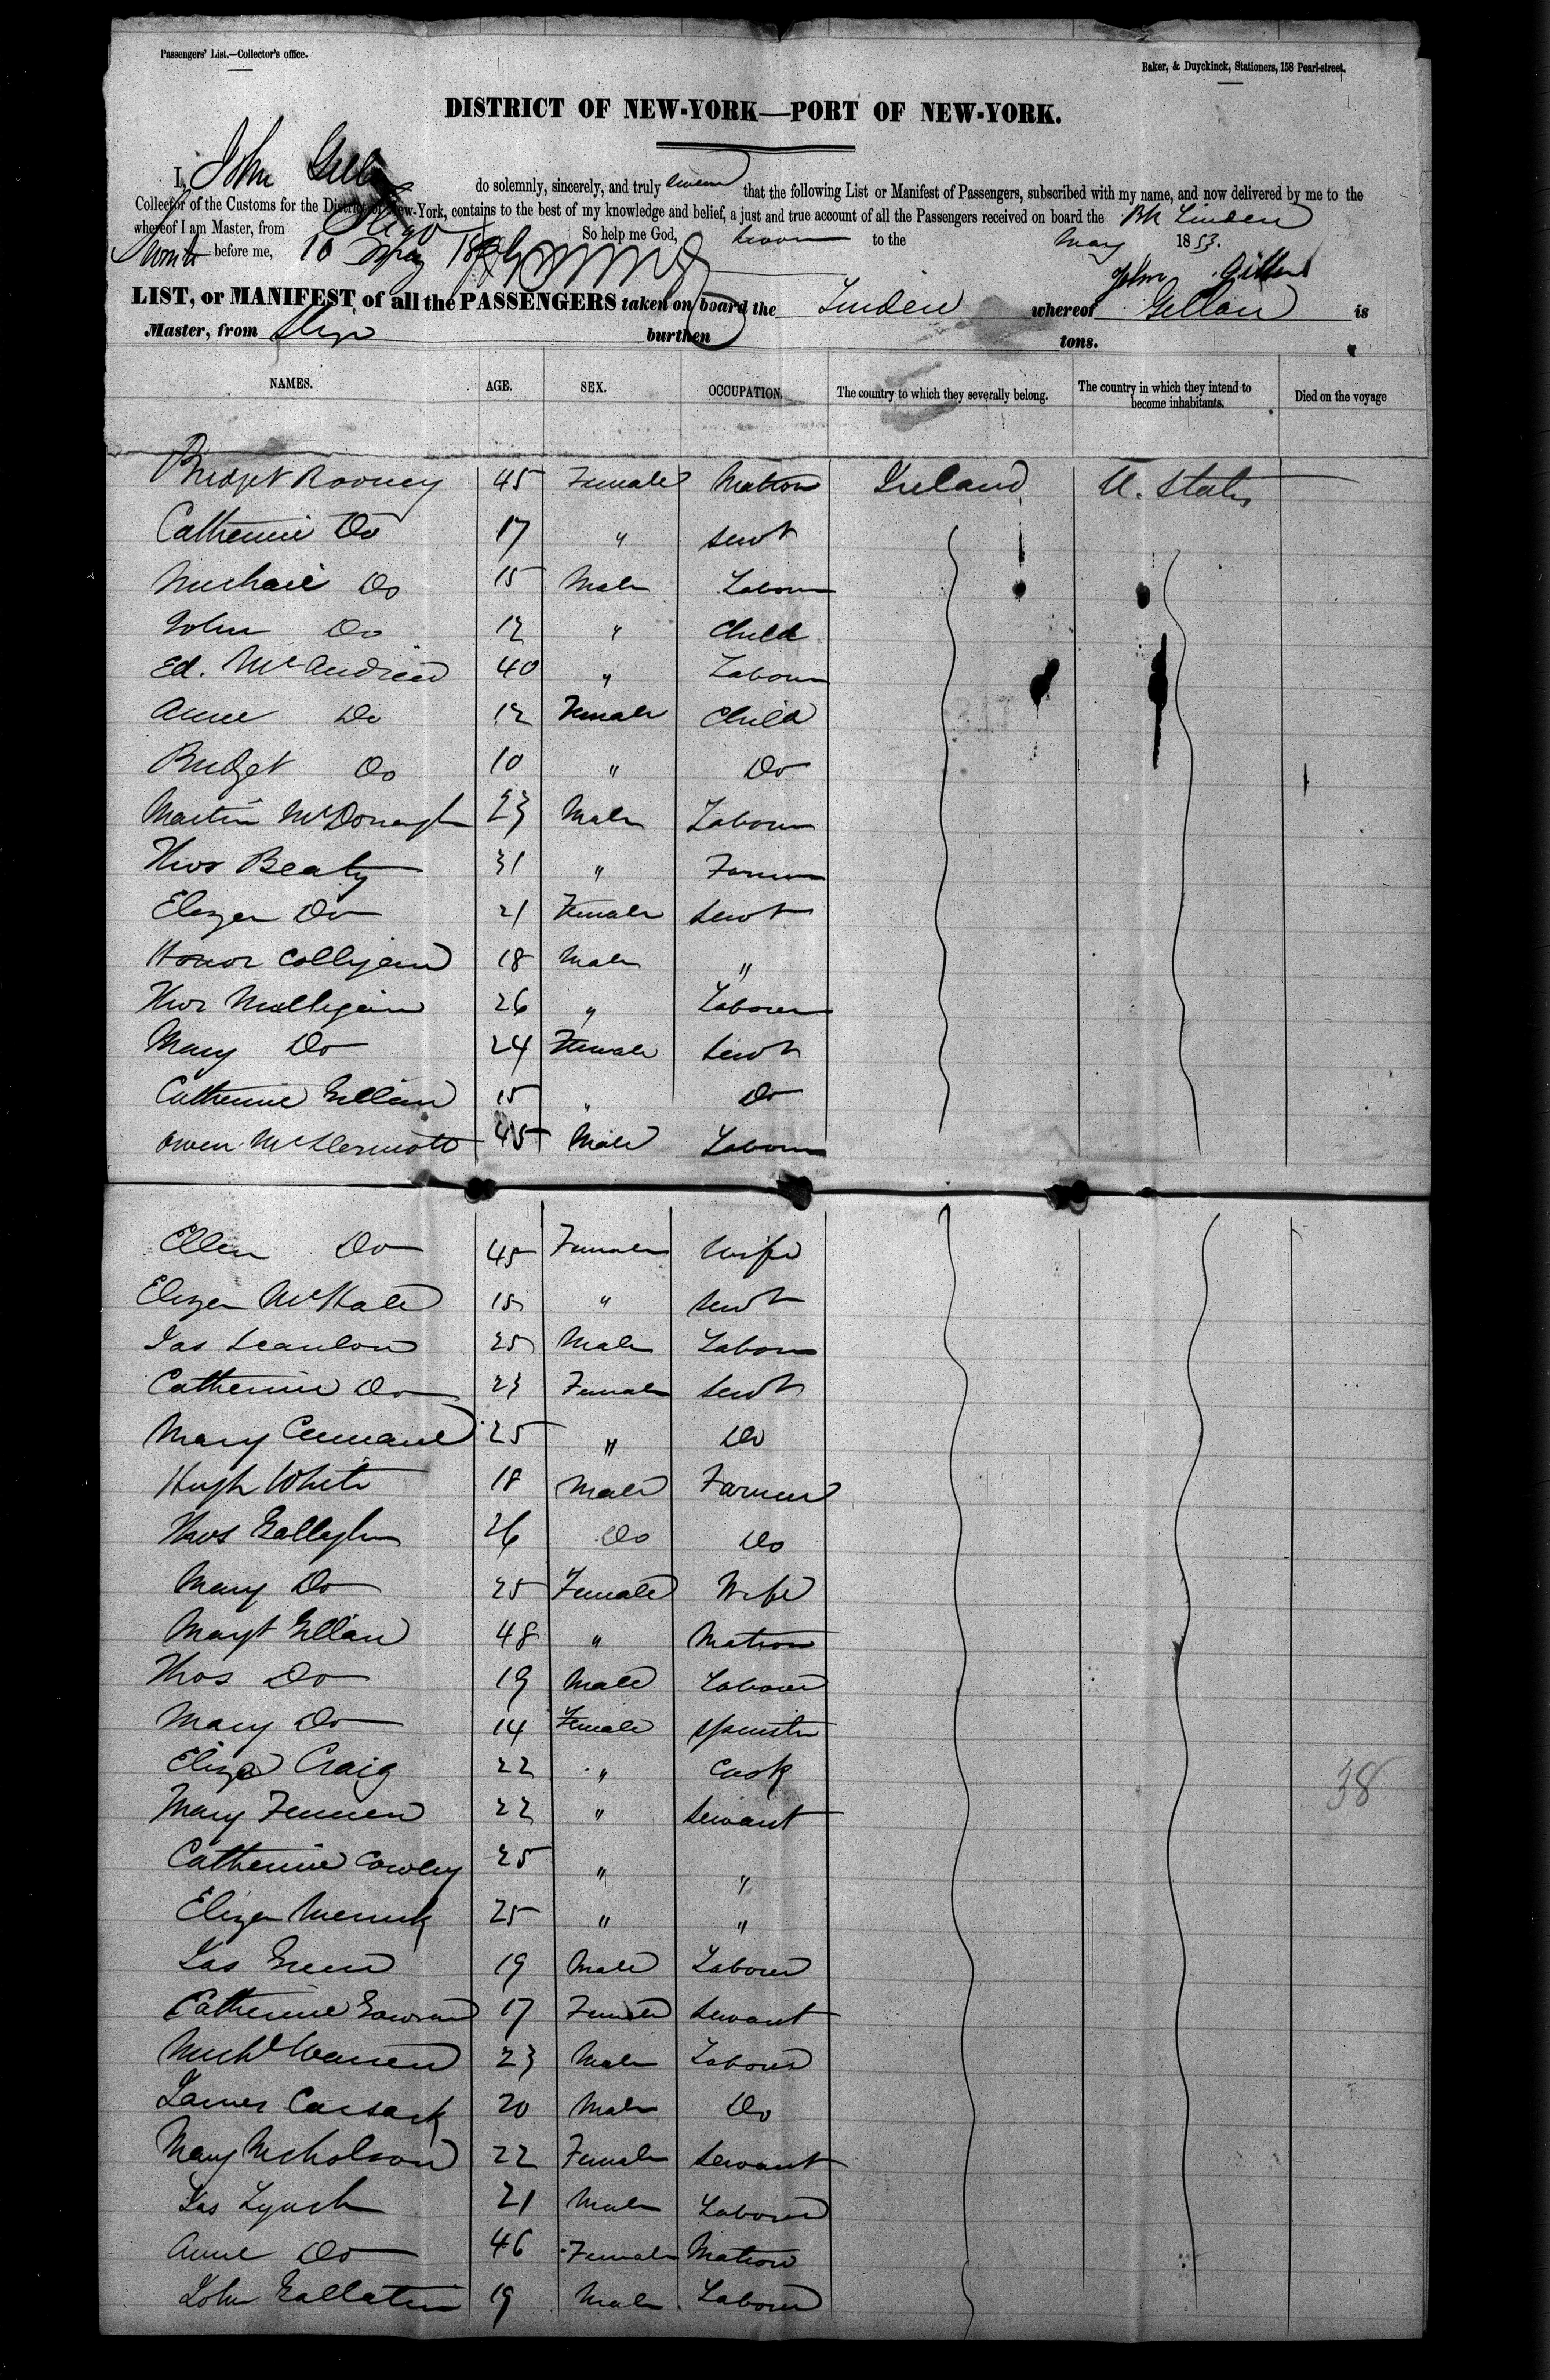 Passengers' List.—Collector's office.
Baker, & Duyckinck, Stationers, 158 Pearl-street.
DISTRICT OF NEW-YORK—PORT OF NEW-YORK.
I, John do solemnly, sincerely, and truly swear that the following List or Manifest of Passengers, subscribed with my name, and now delivered by me to the
Collector of the Customs for the District of New-York, contains to the best of my knowledge and belief, a just and true account of all the Passengers received on board the Bk Linden
whereof I am Master, from Sligo So help me God,
before me, 16 May to the May 1853.
John Gillan
LIST, or MANIFEST, of all the PASSENGERS taken on board the Linden whereof Gillan is
Master, from Sligo burthen tons.
NAMES. AGE. SEX. OCCUPATION. The country to which they severally belong. The country in which they intend to become inhabitants. Died on the voyage
Bridget Rooney 45 Female Matron Ireland U. States
Catherine Do 17 " Servt
Michael Do 15 Male Labourer
John Do 12 " Child
Ed. McAndrew 40 " Labourer
Anne Do 12 Female Child
Bridget Do 10 " Do
Martin McDonagh 23 Male Labourer
Thos Beaty 31 " Farmer
Eliza Do 21 Female Servt
Honor Colligan 18 Male "
Thos Mulligan 26 " Labourer
Mary Do 24 Female Servt
Catherine Gillan 15 " Do
Owen McDermott 45 Male Labourer
Ellen Do 45 Female Wife
Eliza McHale 18 " Servt
Jas Scanlon 25 Male Labourer
Catherine Do 23 Female Servt
Mary 25 " Do
Hugh White 18 Male Farmer
Thos Gallagher 26 Do Do
Mary Do 25 Female Wife
Margt Gillan 48 " Matron
Thos Do 19 Male Labourer
Mary Do 14 Female Spinster
Eliza Craig 22 " Cook
38
Mary 22 " Servant
Catherine Cowley 25 " "
Eliza Merrick 25 " "
Jas Green 19 Male Labourer
Catherine 17 Female Servant
Michl Warren 23 Male Labourer
James 20 Male Do
Mary Nicholson 22 Female Servant
Jas Lynch 21 Male Labourer
Anne Do 46 Female Matron
John Gallatin 19 Male Labourer